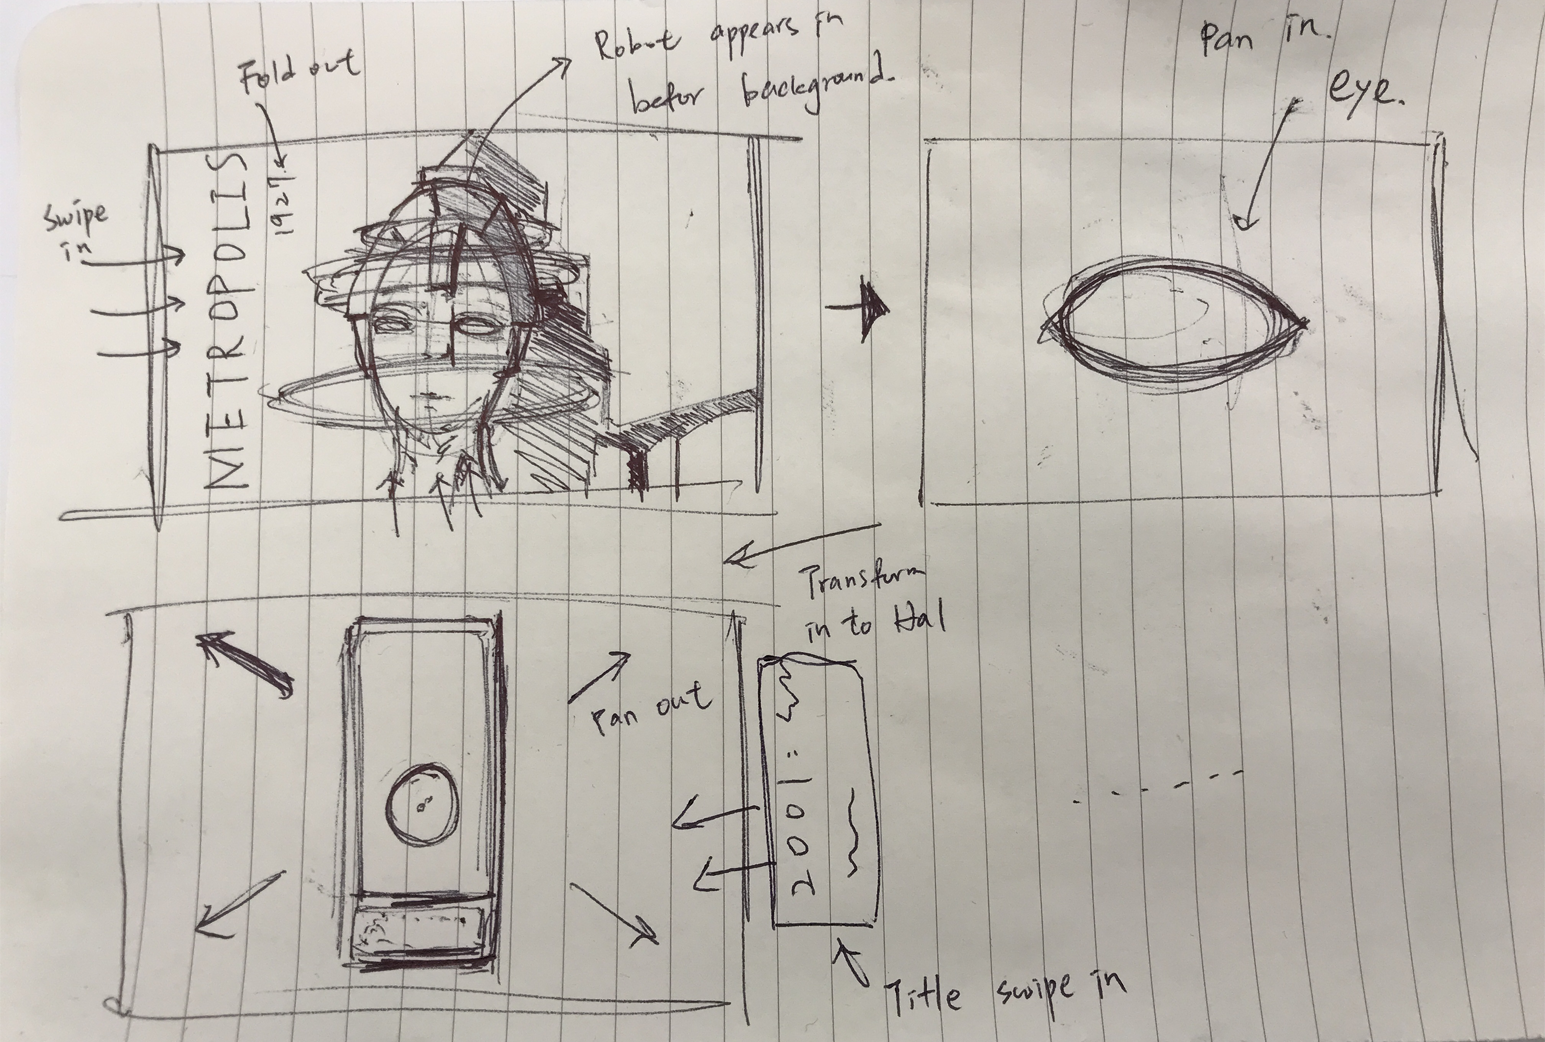 Fold out
Robot appears in
befor background.
Pan in.
eye.
Swipe
in
METROPOLIS
1927
Transform
in to Hal
Pan out
2001:
Title swipe in